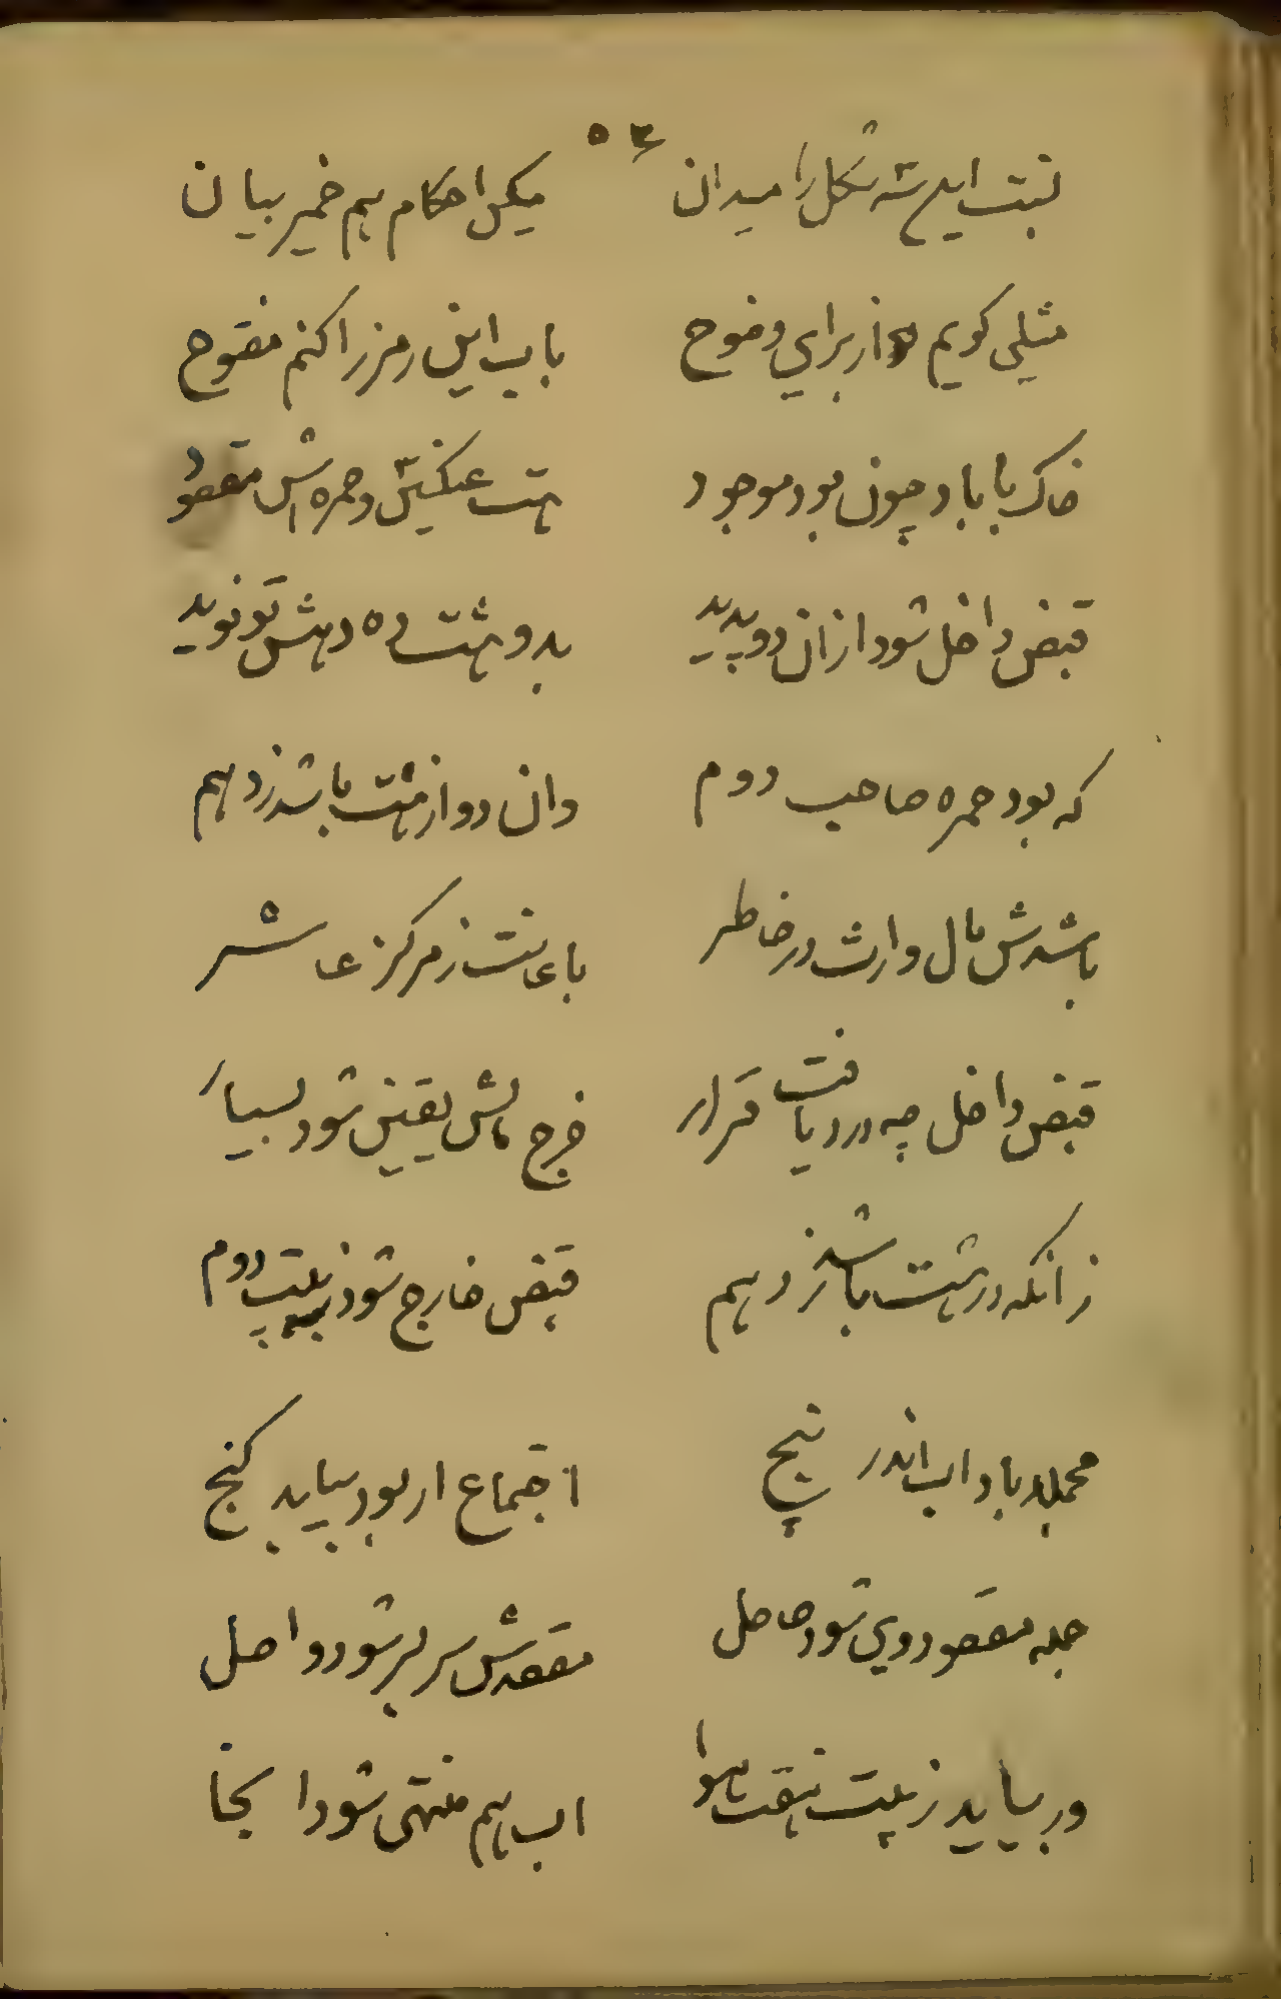 ۵۴
نسبت این سه شکل را میدان میکن احکام هم ضمیر بیان
مثلی کویم از برای وضوح باب این رمز را کنم مفتوح
خاک با باد چون بود موجود هست عنکیس و حمره اش مقصود
قبض داخل شود ازان دو پدید بدو هشت ده دهش تو نوید
که بود حمره صاحب دوم وان دو از هشت باشد نزدهم
باشدش مال وارث در خاطر باعانت ز مرکز عاشر
قبض داخل چه در دریافت قرار خرج مالش یقین شود بسیار
زانکه در هشت باشد نزدهم قبض خارج شود ز بیت دوم
باد اب اندر پنج اجتماع ار بود بیابد کنج
جمله مقصود وی شود حاصل مقصدش سر بسر شود واصل
ور بیاید ز بیت هفت هوا اب هم منتهی شود انجا